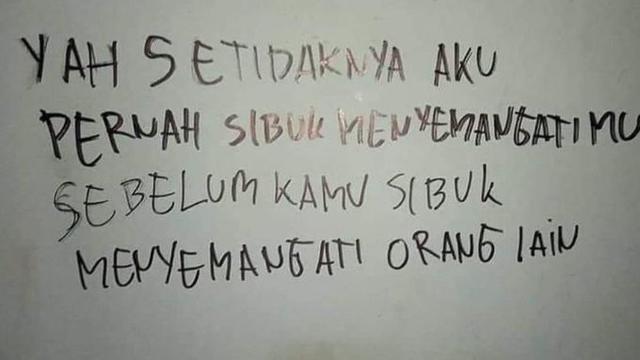 YAH SETIDAKNYA AKU
PERNAH SIBUK MENYEMANGATIMU
SEBELUM KAMU SIBUK
MENYEMANGATI ORANG LAIN